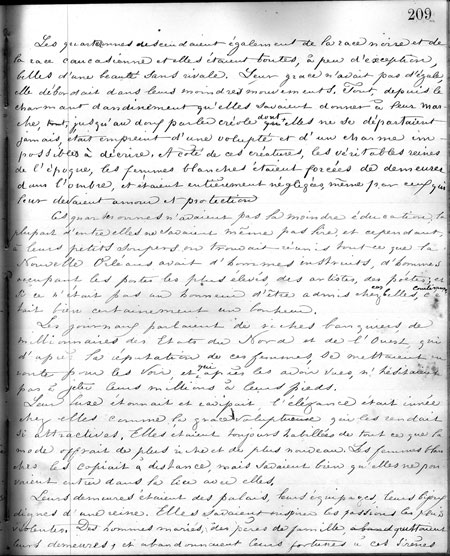 209
Les quarteronnes descendaient également de la race noire et de
la race caucasienne et elles étaient toutes, à peu d'exception,
belles d'une beauté sans rivale. Leur grace n'avait pas d'égale,
elle débordait dans leurs moindres mouvements. Tout, depuis le
charmant dandinement qu'elles savaient donner à leur mar
che, jusqu'au doux parler créole dont elles ne se départaient
jamais, était empreint d'une volupté et d'un charme im-
possibles à décrire. A côté de ces créatures, les véritables reines
de l'époque, les femmes blanches étaient forcées de demeurer
dans l'ombre, et étaient entièrement négligés même par ceux qui
leur devaient amour et protection
Ces quarteronnes n'avaient pas la moindre éducation, la
plupart d'entre elles ne savaient même pas lire, et cependant,
à leurs petits soupers on trouvait réunis tout ce que la
Nouvelle Orléans avait d'hommes instruits, d'hommes
occupant les postes les plus élevés, des artistes, des poètes, et
si ce n'était pas un honneur d'être admis chez elles, c'é
tait bien certainement un bonheur.
Les journaux parlaient de riches banquiers, de
millionnaires des Etats du Nord et de l'Ouest, qui
d'après la réputation de ces femmes, se mettaient en
route pour les voir et qui après les avoir vues, n'hésitaient
pas à jeter leurs millions à leurs pieds.
Leur luxe étonnait et l'élégance était innée
chez elles comme la grace voluptueuse qui les rendait
si attractives. Elles étaient toujours habillées de tout ce que la
mode offrait de plus riche et de plus nouveau. Les femmes blan
ches les copiait à distance, mais savaient bien qu'elles ne pou
vaient entrer dans la lice avec elles.
Leurs demeures étaient des palais, leurs équipages, leurs bijoux
dignes d'une reine. Elles savaient inspirer les passions les plus
violentes. Des hommes mariés, des pères de famille
leurs demeures, et abandonnaient leurs fortunes à ces sirènes